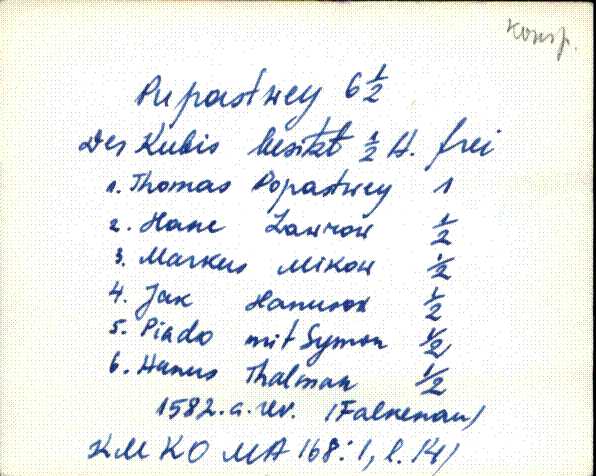 Konsp.
Pupastwey 6 1/2
Der Kubis besitzt 1/2 H. frei
1. Thomas Popastwey 1
2. Hane Lawrow 1/2
3. Markus Mikow 1/2
4. Jak Hanusow 1/2
5. Piado mit Symon 1/2
6. Hanus Thalman 1/2
1582.a. rev. (Falkenau)
KM KO MA 168:1, l. 14)